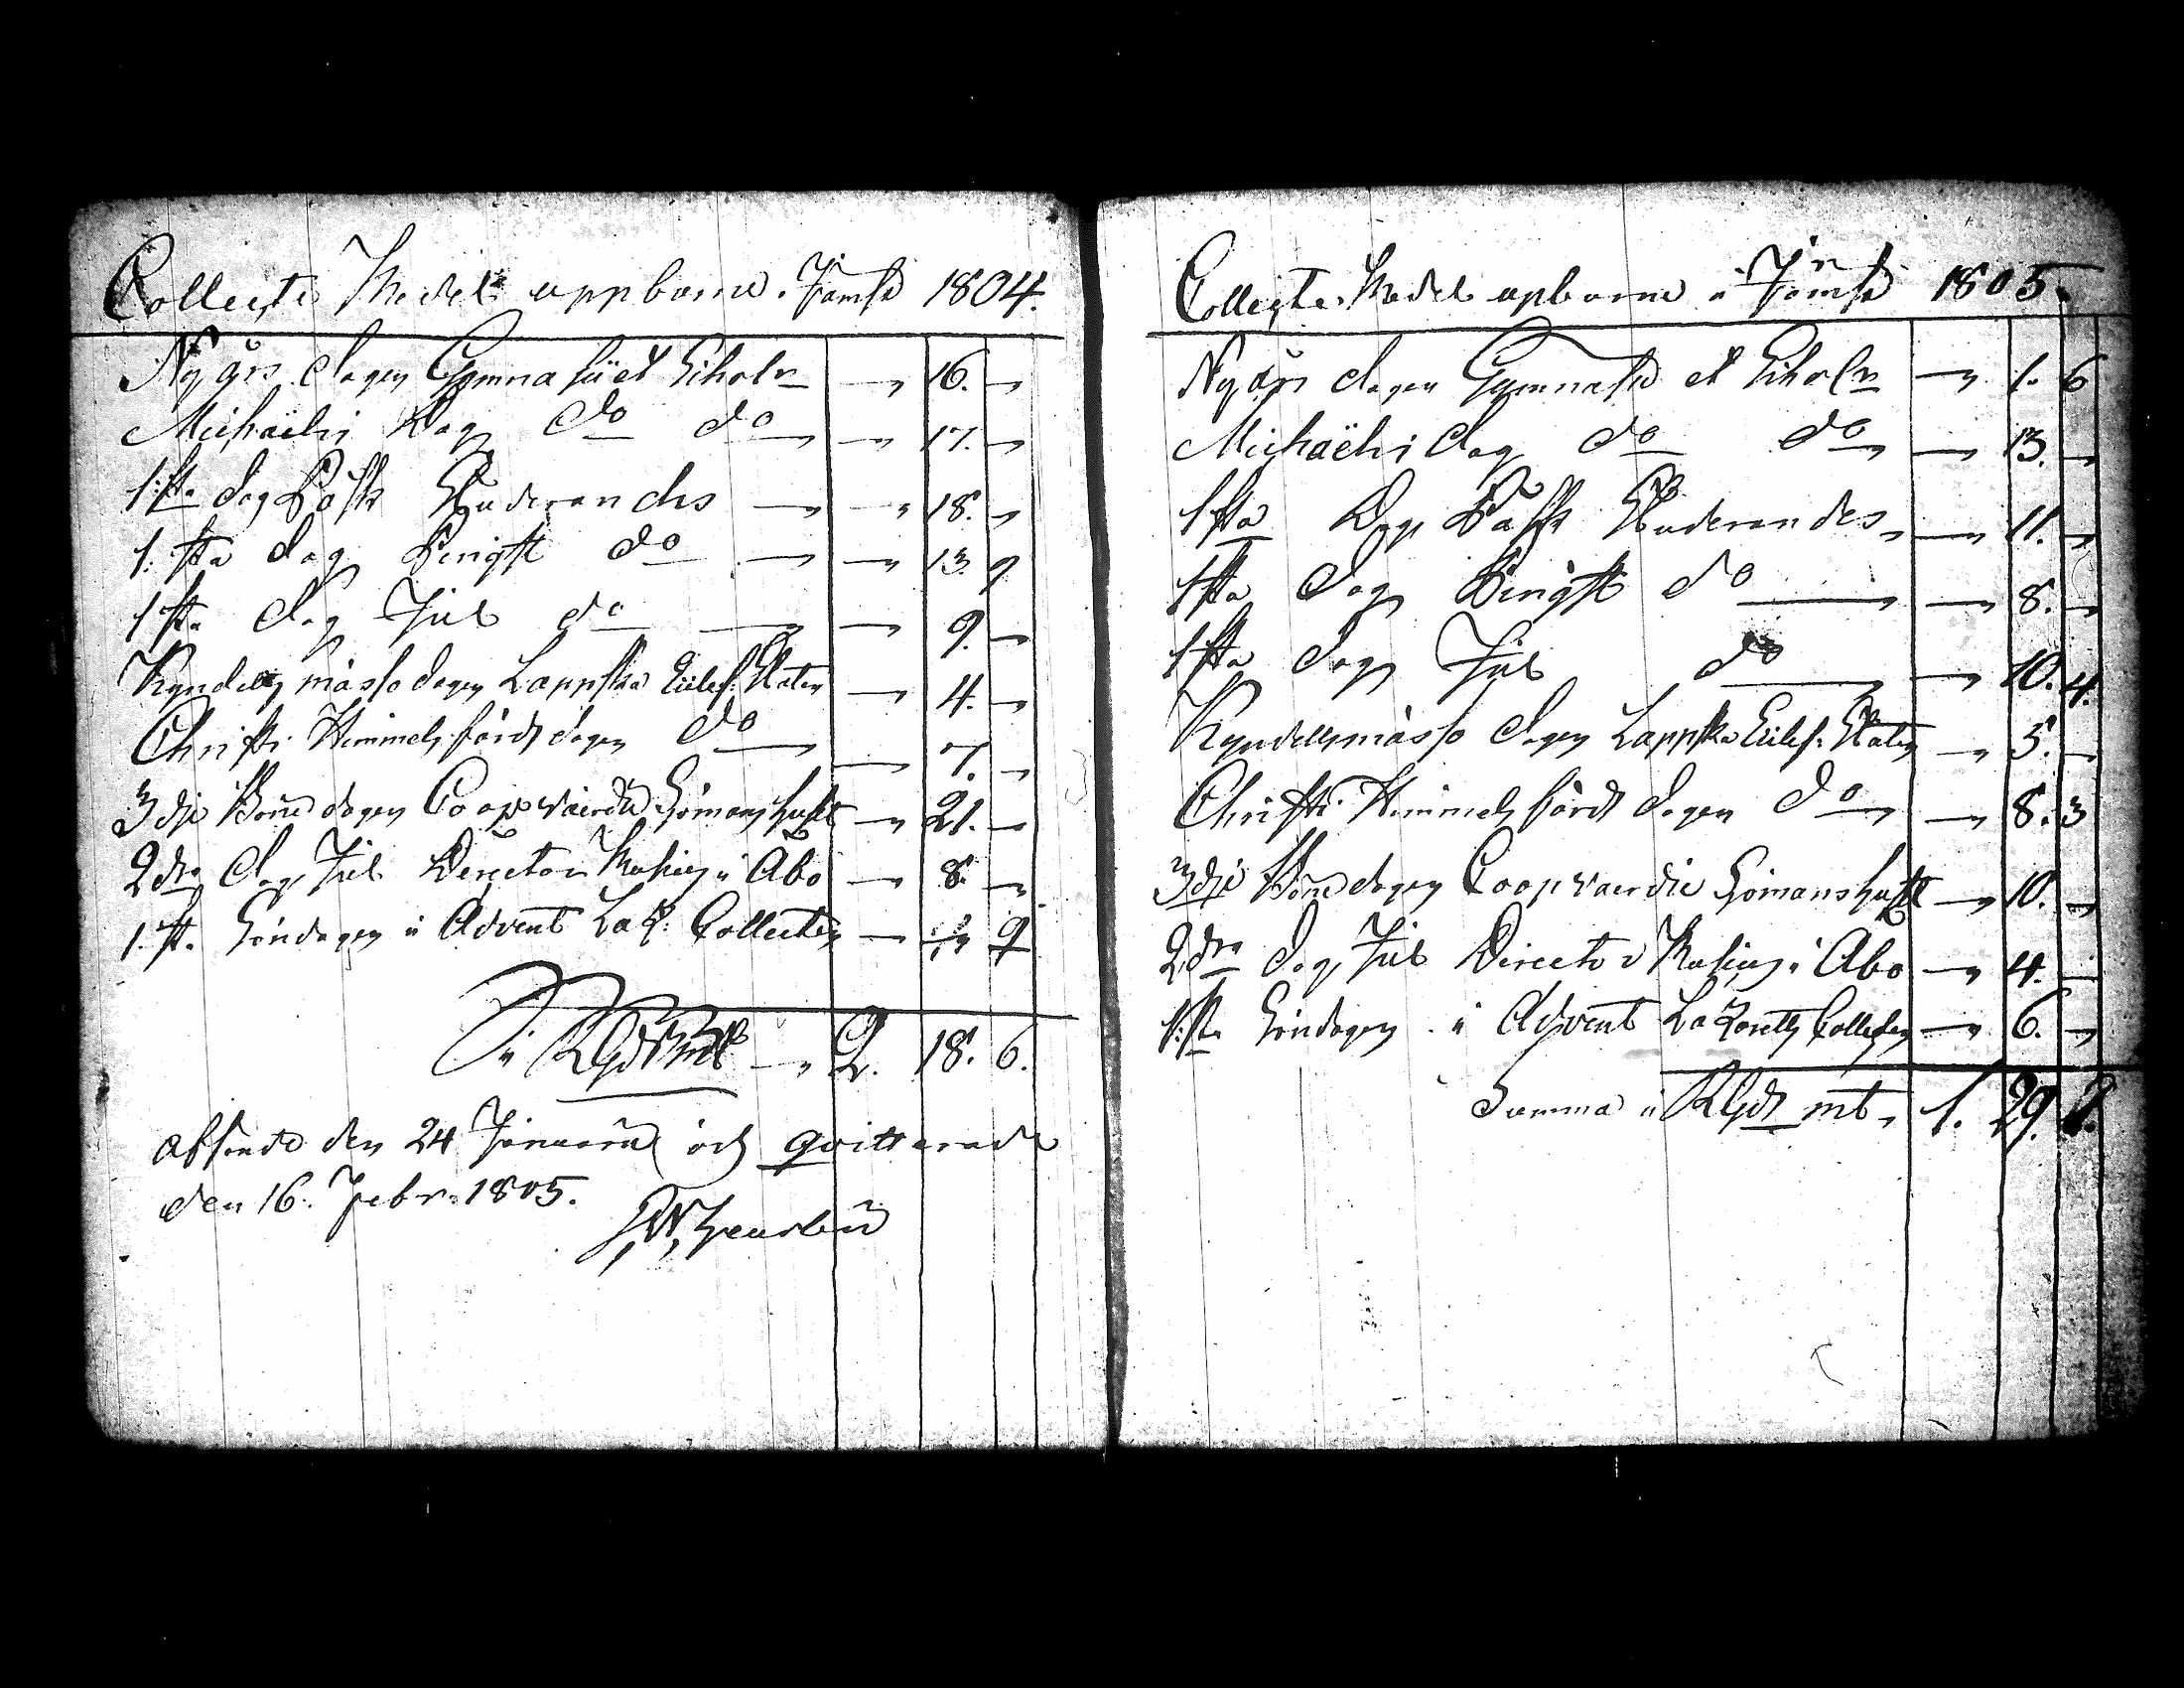 Collecte Medel uppburne i Jämsä 1804.
Nyårs dagen Gymnasii et Schol: — " 16. "
Michaëlis Dag do do — " 17. "
1:sta dag Påsk Studerandes — " 18. "
1:sta dag Pingst do — " 13. 9
1sta dag Jul do — " 9. "
Kyndelsmässo dagen Lappska Eclef: Staten — " 4. "
Christi Himmelsfärds dagen do — " 7. "
3dje Böne dagen Coopvaerdie Sjömanshuset — " 21. "
2dra dag Jul Director i Åbo — " 8. "
1:sta Söndagen i Advent Laz: Collecten — " 9
RGds 2. 18. 6.
afsände den 24 Januarii och qvitterade
den 16. Febr. 1805.
Collecte Medel upburne i Jämsä 1805.
Nyårs dagen Gymnasii et Schol: — " 1. 6
Michaëlis dag do do — " 13. "
1sta Dag Påsk Studerandes — " 11. "
1sta dag Pingst do — " 8. "
1sta dag Jul do — " 10. 4.
Kyndelsmässo dagen Lappska Eclef: Staten — " 5. "
Christi Himmelsfärds dagen do — " 8. 3
3dje Böne dagen Coopvaerdie Sjömanshuset — " 10. "
2dra dag Jul Director i Åbo — " 4. "
1:sta Söndagen i Advent Lazaretts Collecten — " 6. "
Summa i RGds mt. 1. 29.